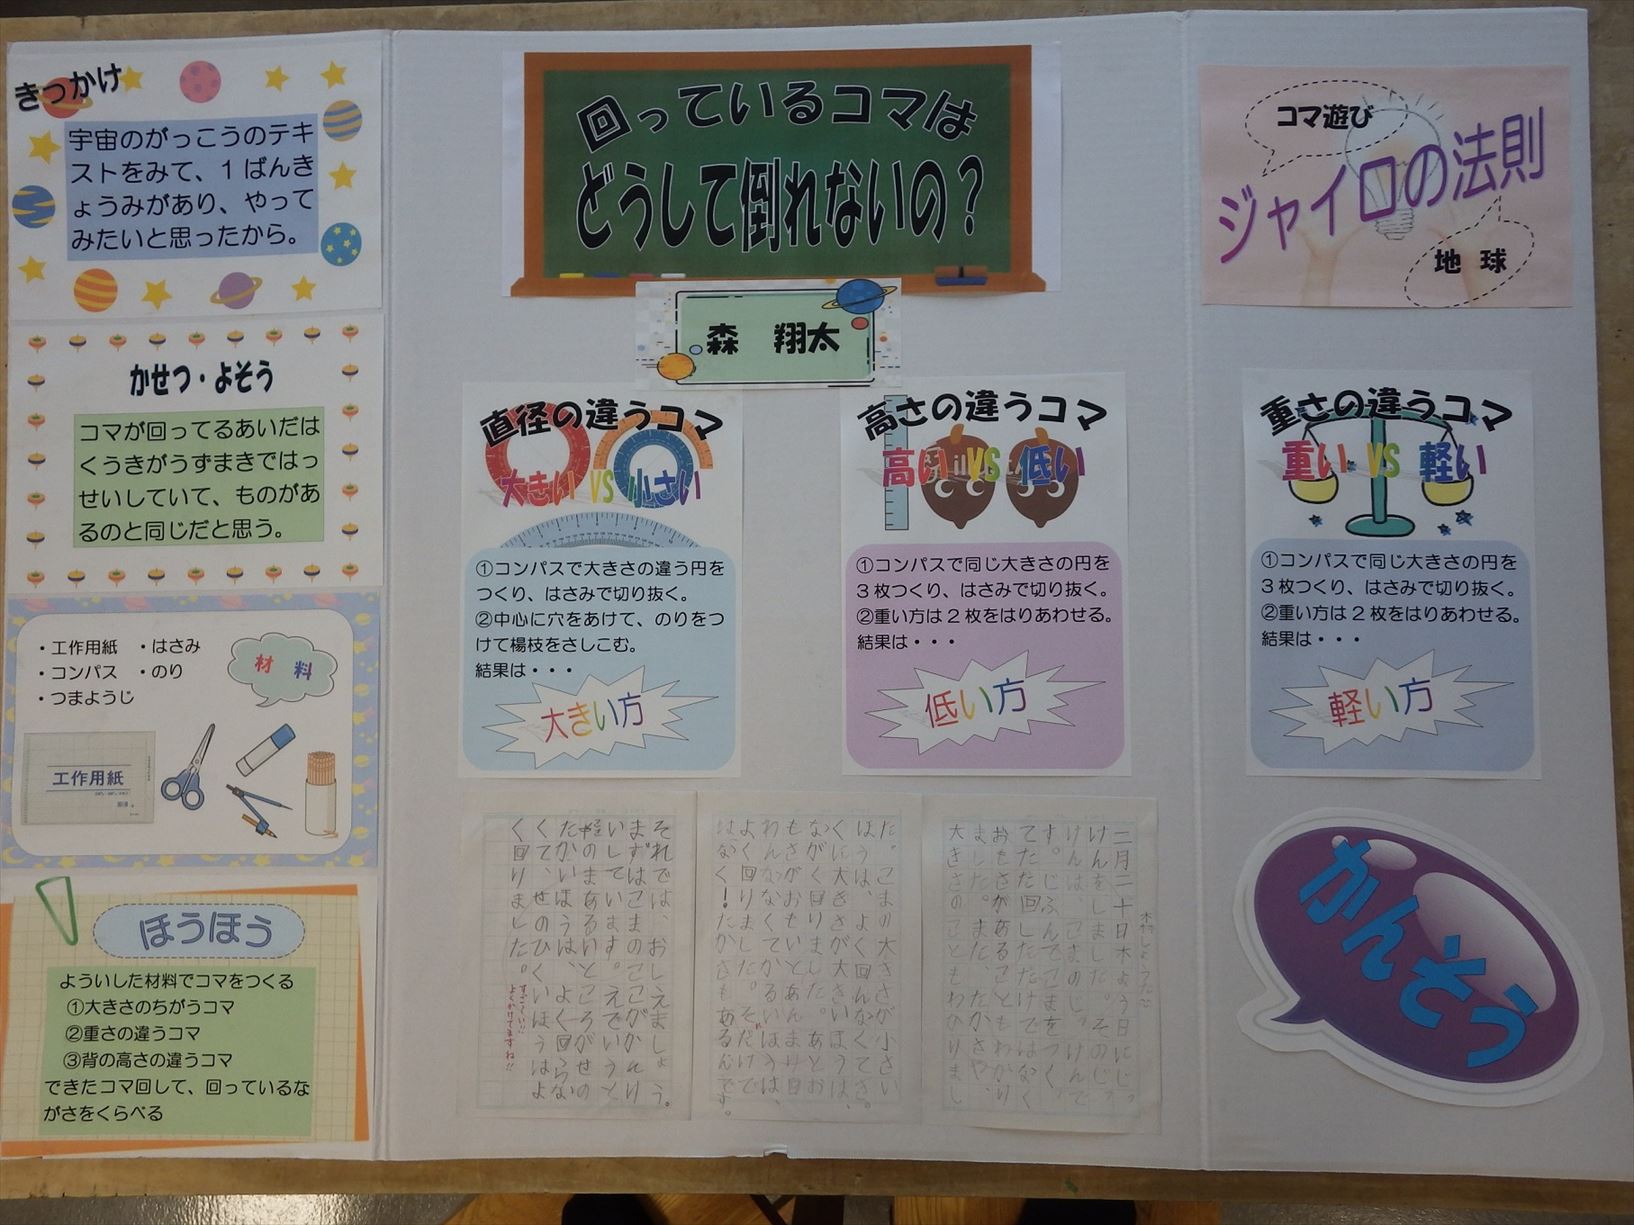 きっかけ
宇宙のがっこうのテキ
ストをみて、1ばんき
ょうみがあり、やって
みたいと思ったから。
かせつ・よそう
コマが回ってるあいだは
くうきがうずまきではっ
せいしていて、ものがあ
るのと同じだと思う。
材料
・工作用紙 ・はさみ
・コンパス ・のり
・つまようじ
工作用紙
ほうほう
よういした材料でコマをつくる
①大きさのちがうコマ
②重さの違うコマ
③背の高さの違うコマ
できたコマ回して、回っているな
がさをくらべる
回っているコマは
どうして倒れないの？
森 翔太
直径の違うコマ
大きい VS 小さい
①コンパスで大きさの違う円を
つくり、はさみで切り抜く。
②中心に穴をあけて、のりをつ
けて楊枝をさしこむ。
結果は・・・
大きい方
高さの違うコマ
高い VS 低い
①コンパスで同じ大きさの円を
3枚つくり、はさみで切り抜く。
②重い方は2枚をはりあわせる。
結果は・・・
低い方
ジャイロの法則
コマ遊び
地 球
重さの違うコマ
重い VS 軽い
①コンパスで同じ大きさの円を
3枚つくり、はさみで切り抜く。
②重い方は2枚をはりあわせる。
結果は・・・
軽い方
二月二十日木よう日にじっ
けんをしました。そのじっ
けんは、こまのじっけんで
す。じぶんでこまをつくっ
てただ回しただけではなく
おもさがあることもわかり
ました。また、たかさや、
大きさのこともわかりまし
た。こまの大きさが小さい
ほうは、よく回んなくてさ。
くに大きさが大きいほうは、
ながく回りました。あとお
もさがおもいとあんまり回
わんなくてかるいほうは、
よく回りました。それだけで
はなく！たかさもあるんです。
それでは、おしえましょう。
まずはこまのここがかんけ
いしています。えでいうと
やのまあるいところがせの
たかいほうは、よく回らな
くて、せのひくいほうはよ
く回りました。
すごくいい!!
よくかけてますね!!
かんそう